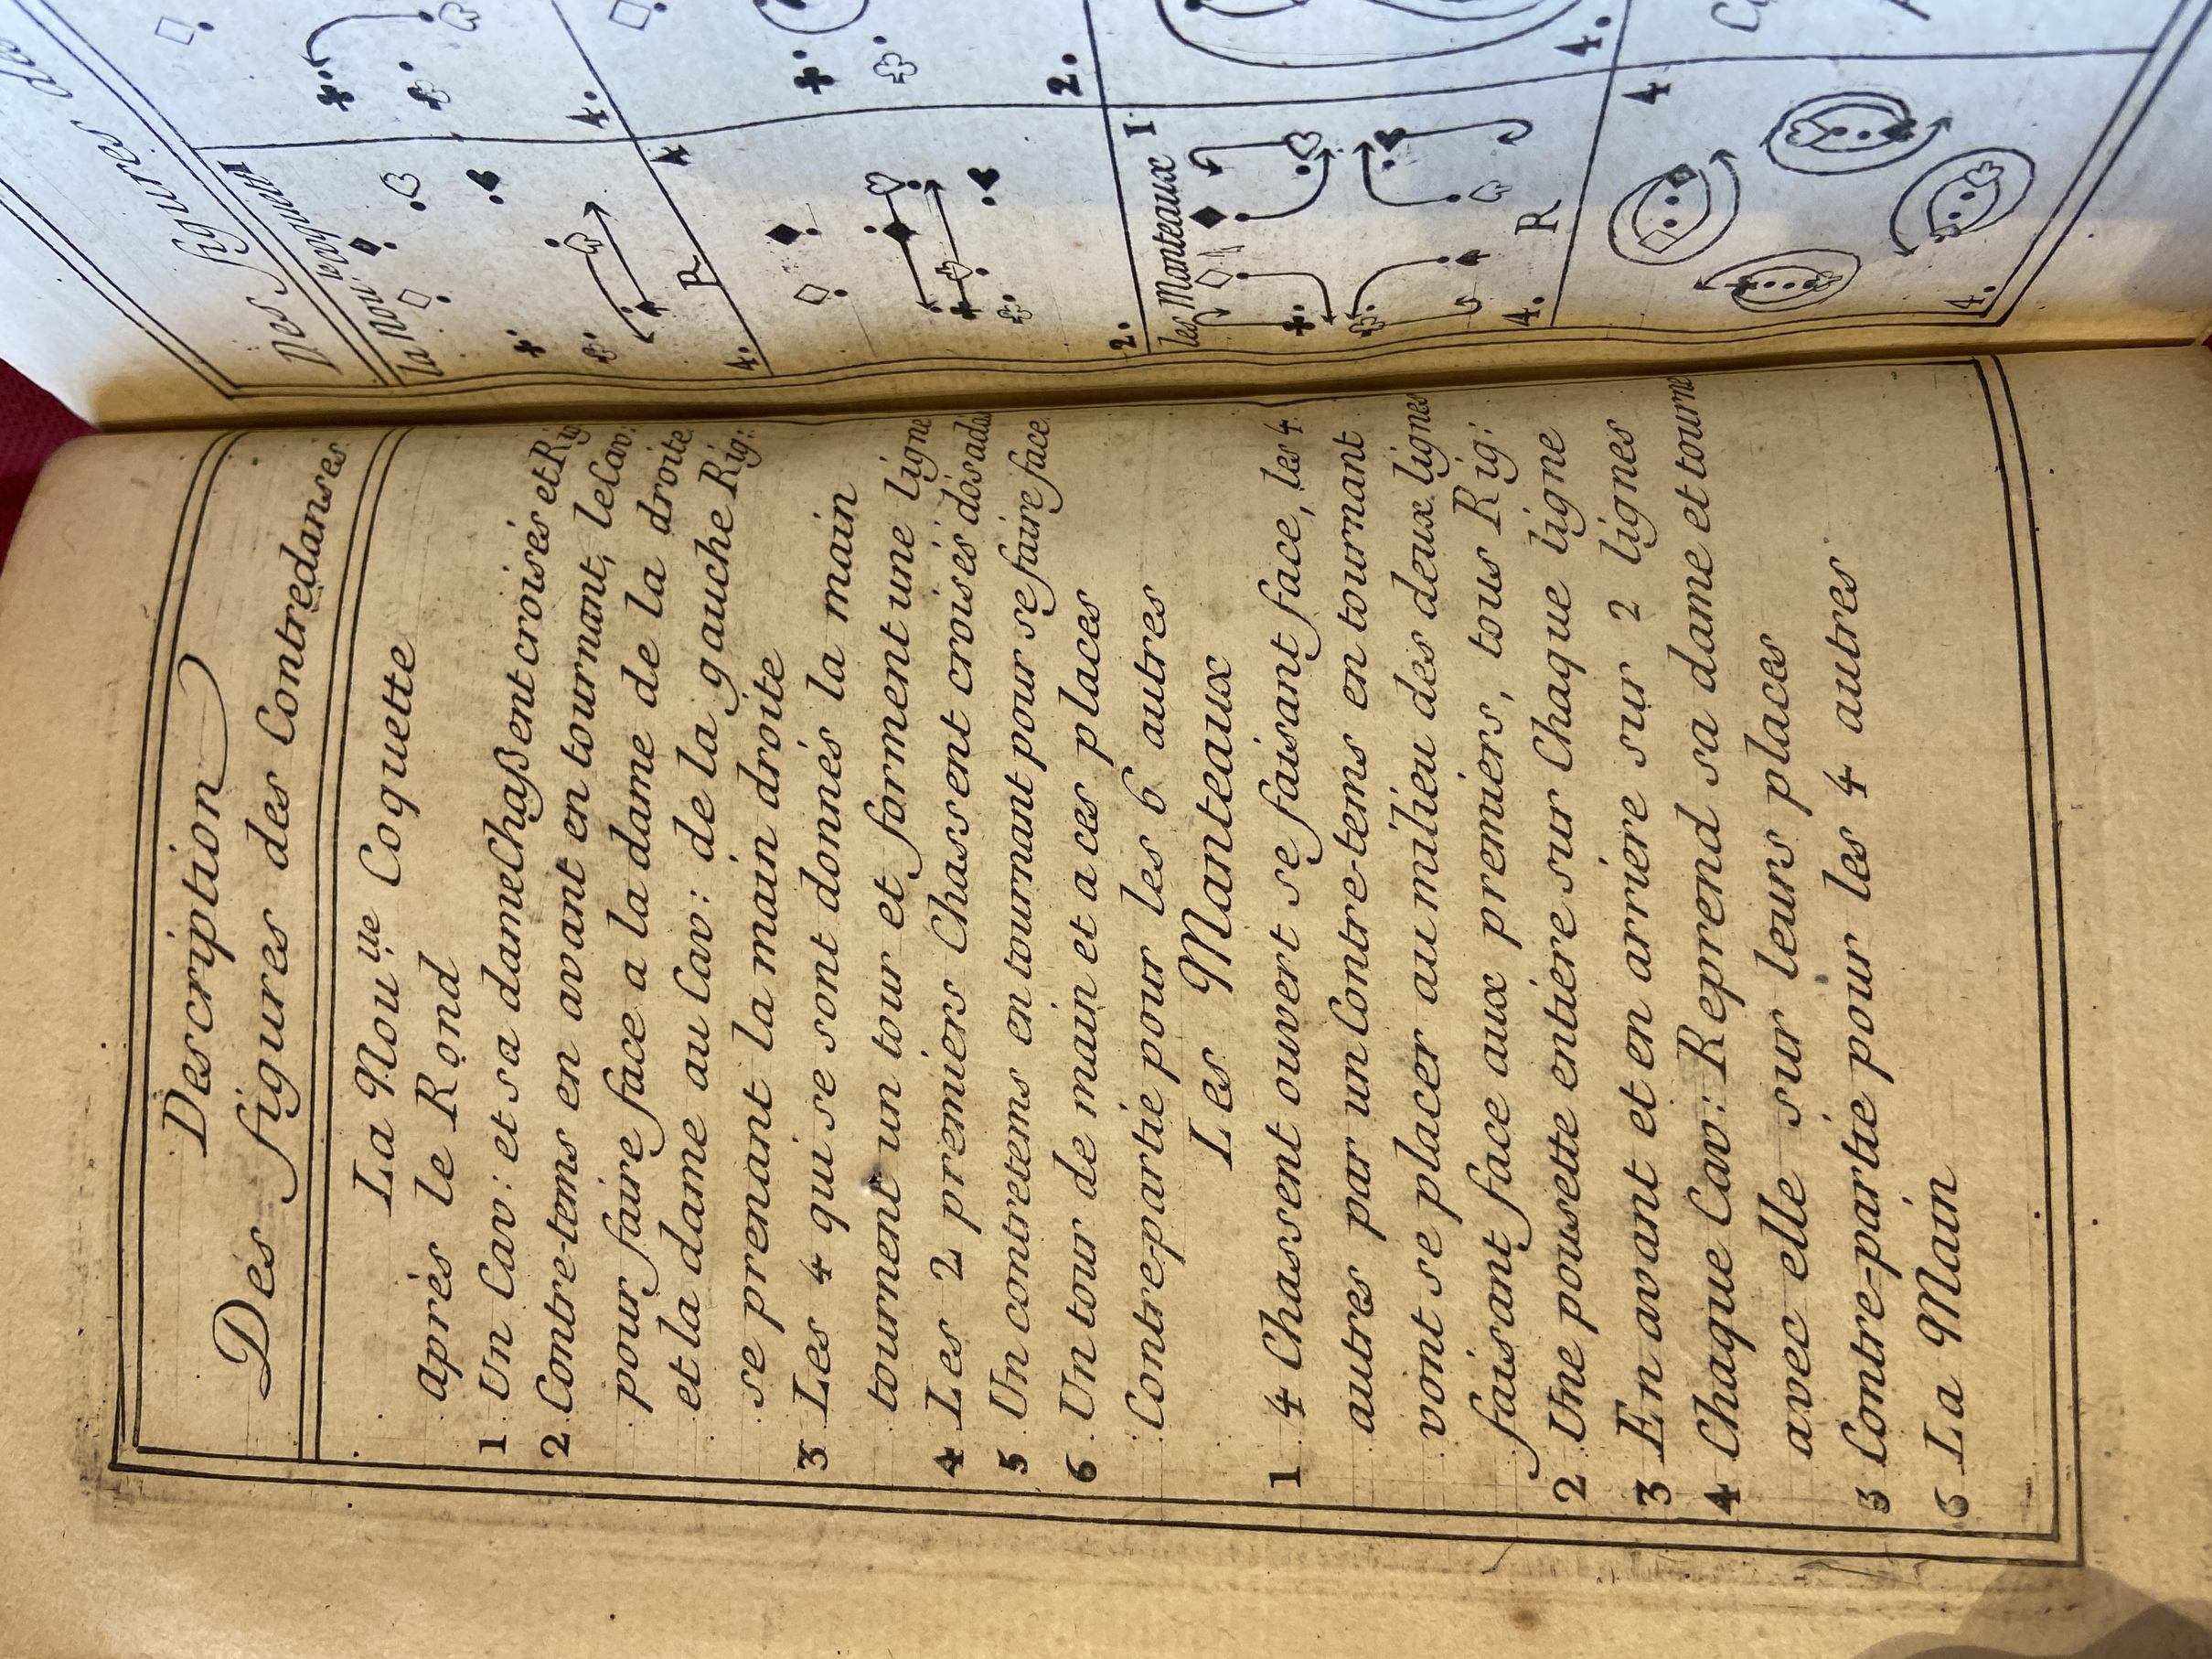 Description
Des figures des Contredanses
La Nou.lle Coquette
après le Rond
1 Un Cav: et sa dame Chaßent croisés et Rig
2 Contre-tems en avant en tournant, le Cav:
pour faire face a la dame de la droite
et la dame au Cav: de la gauche Rig:
se prenant la main droite
3 Les 4 qui se sont donnés la main
tournent un tour et forment une ligne
4 Les 2 premiers Chassent croisés dos a dos
5 Un contretems en tournant pour se faire face
6 Un tour de main et a ces places
Contre-partie pour les 6 autres
Les Manteaux
1 4 Chassent ouvert se faisant face, les 4
autres par un Contre-tems en tournant
vont se placer au milieu des deux lignes
faisant face aux premiers, tous Rig:
2 Une pousette entiere sur Chaque ligne
3 En avant et en arriere sur 2 lignes
4 Chaque Cav: Reprend sa dame et tourne
avec elle sur leurs places
5 Contre-partie pour les 4 autres
6 La Main
Des figures des
la Nou.
R
4.
4.
4
2.
2.
les Manteaux
1
R
4.
4.
4
4.